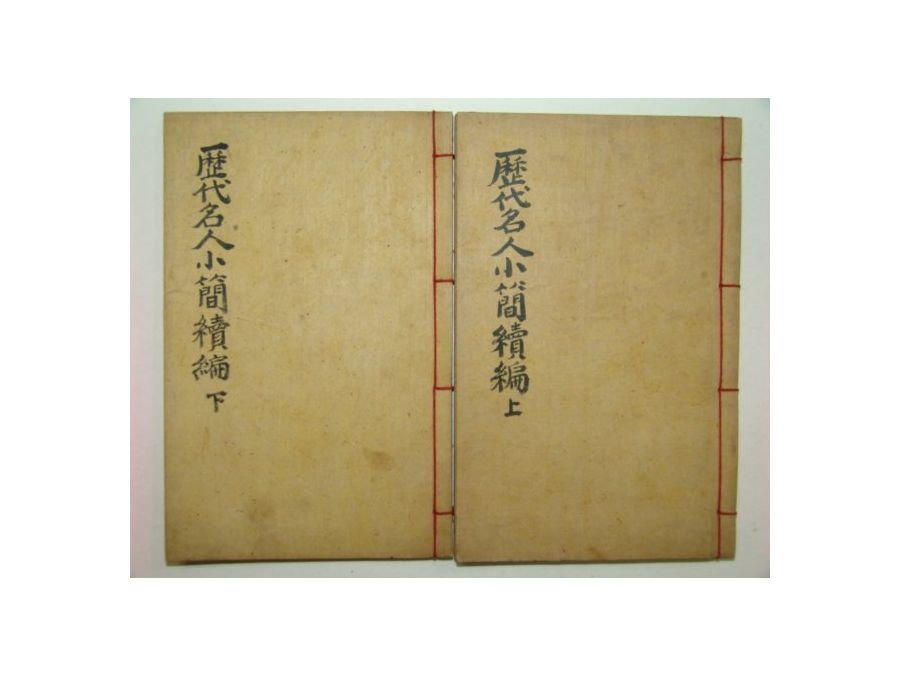 歷代名人小簡續編 上
歷代名人小簡續編 下